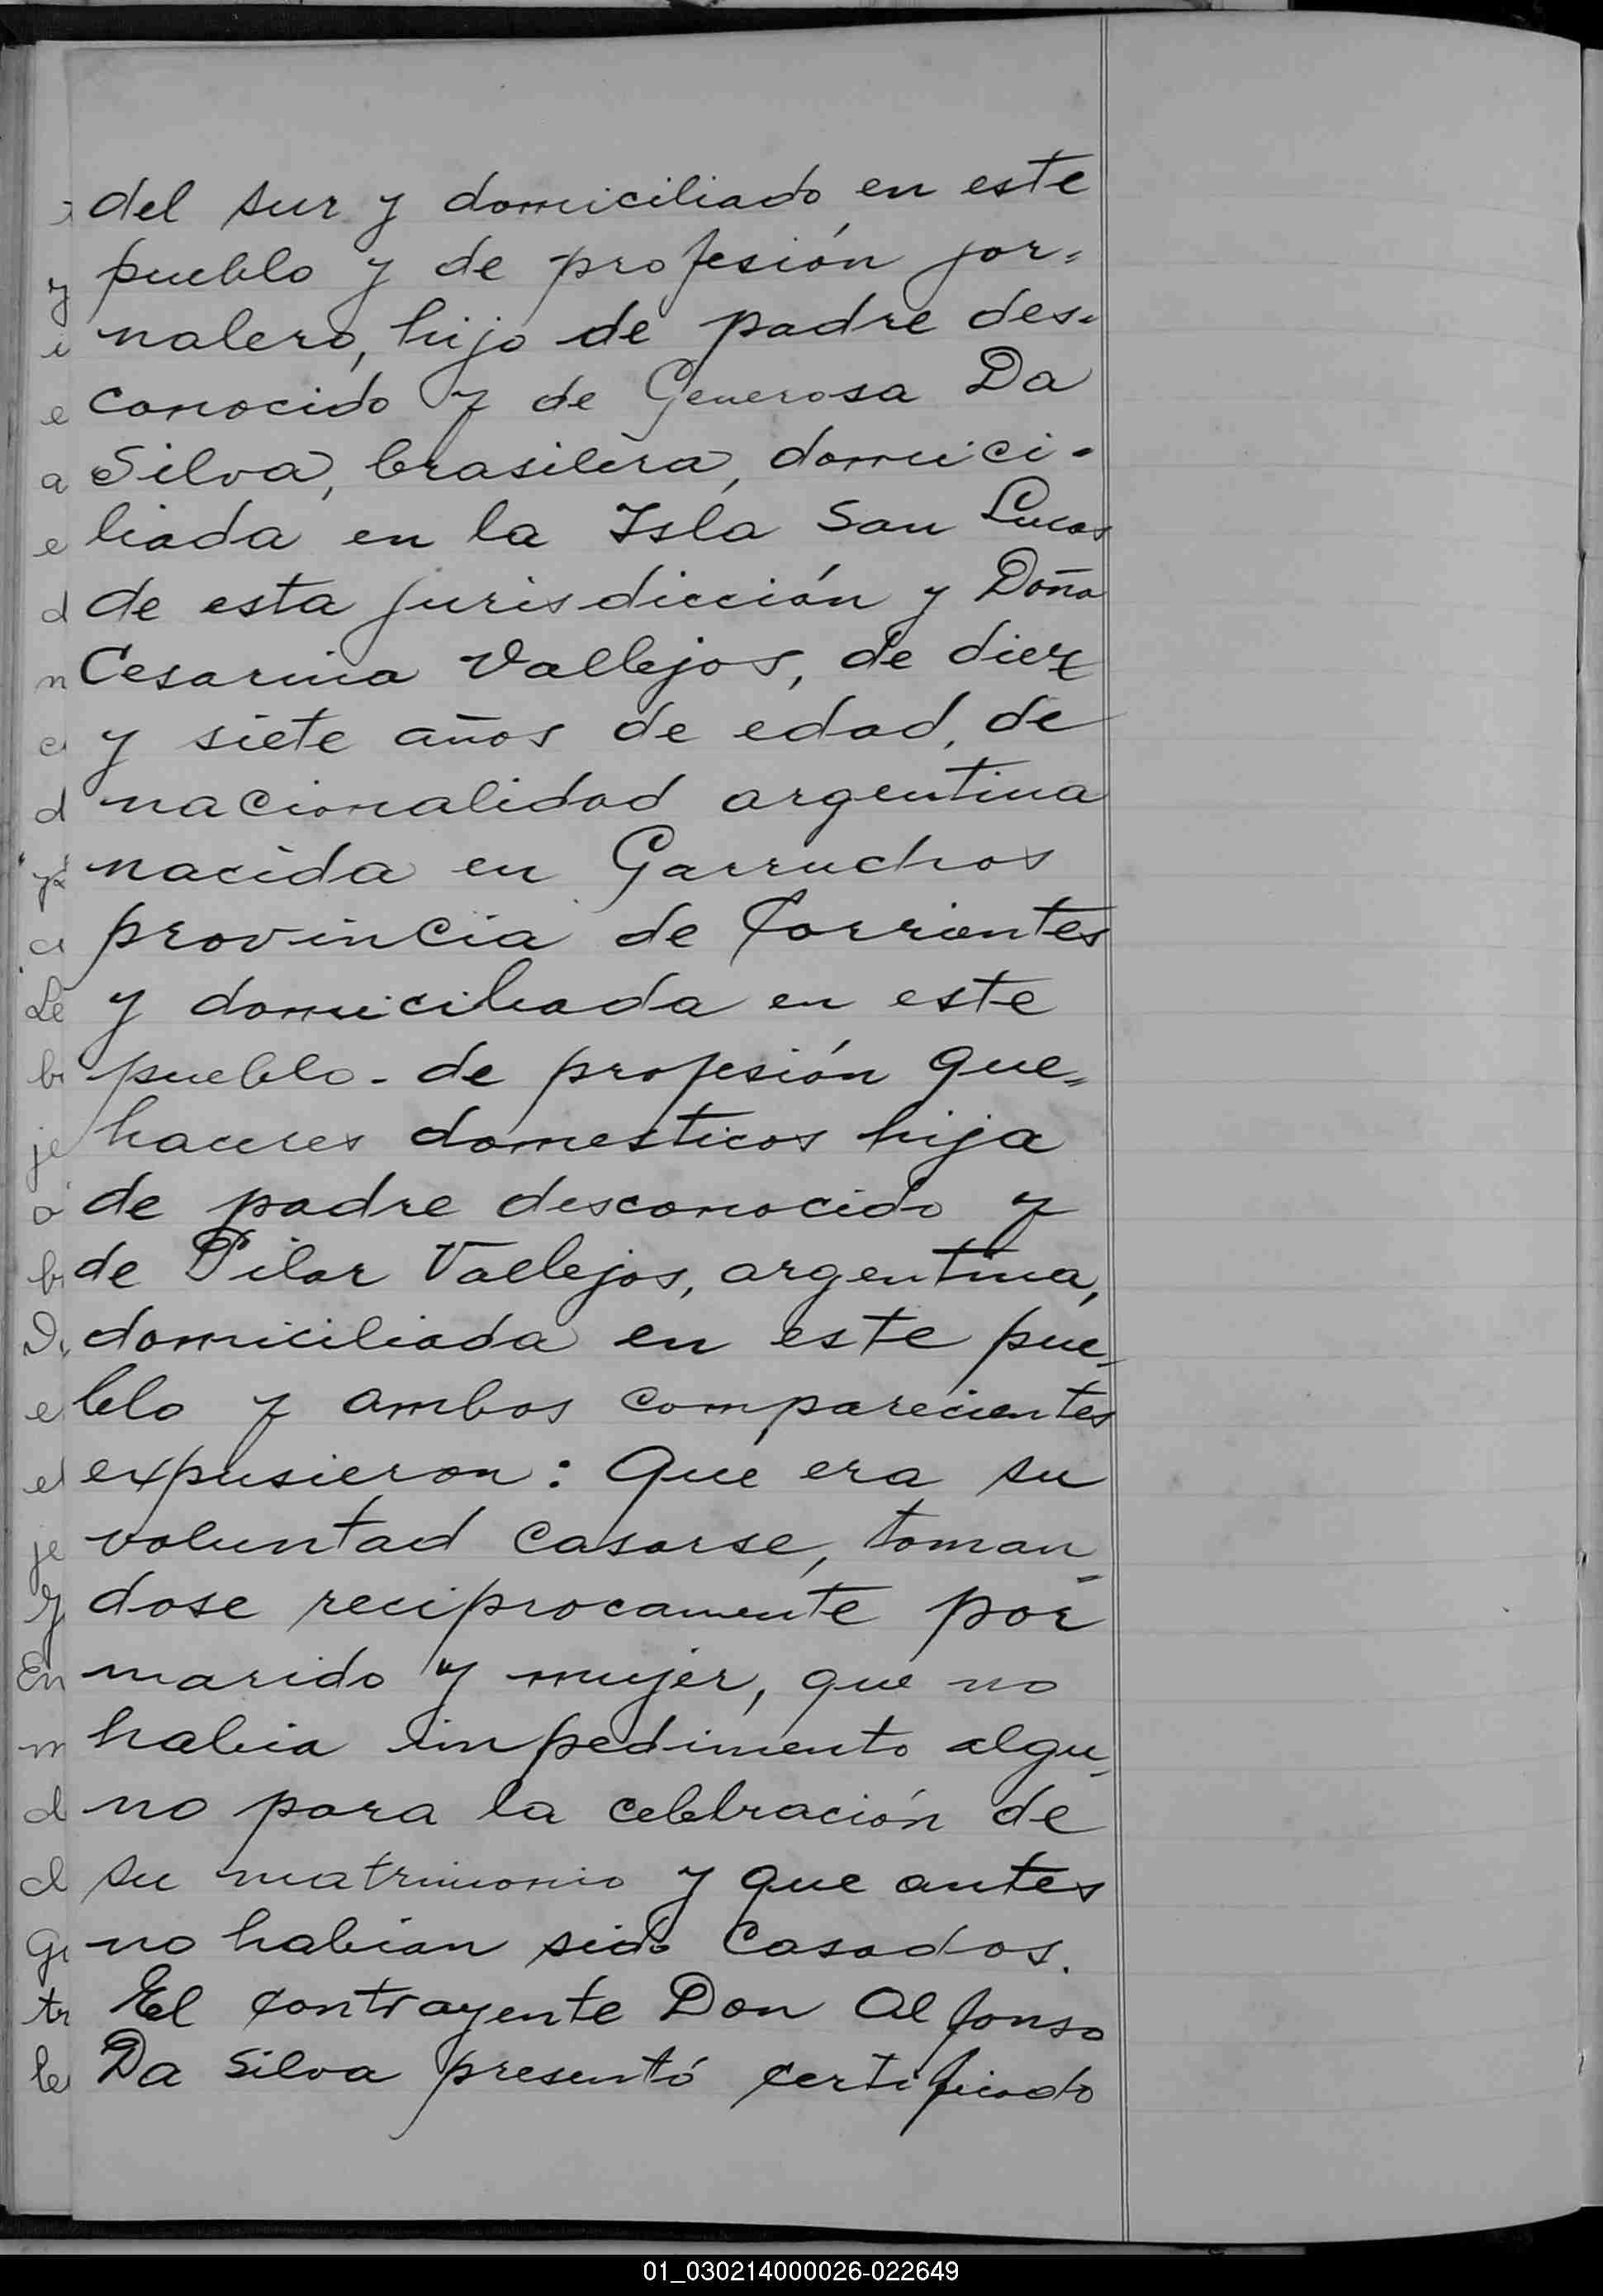 del sur y domiciliado en este
pueblo y de profesión jor=
nalero, hijo de padre des=
conocido y de Generosa Da
Silva, brasilera, domici-
liada en la Isla San Lucas
de esta jurisdicción y Doña
Cesarina Vallejos, de diez
y siete años de edad, de
nacionalidad argentina
nacida en Garruchos
provincia de Corrientes
y domiciliada en este
pueblo - de profesión que=
haceres domesticos hija
de padre desconocido y
de Pilar Vallejos, argentina,
domiciliada en este pue=
blo y ambos comparecientes
expusieron: Que era su
voluntad casarse, toman=
dose reciprocamente por
marido y mujer, que no
habia impedimento algu=
no para la celebración de
su matrimonio y que antes
no habian sido casados.
El contrayente Don Alfonso
Da Silva presentó certificado
01_030214000026-022649